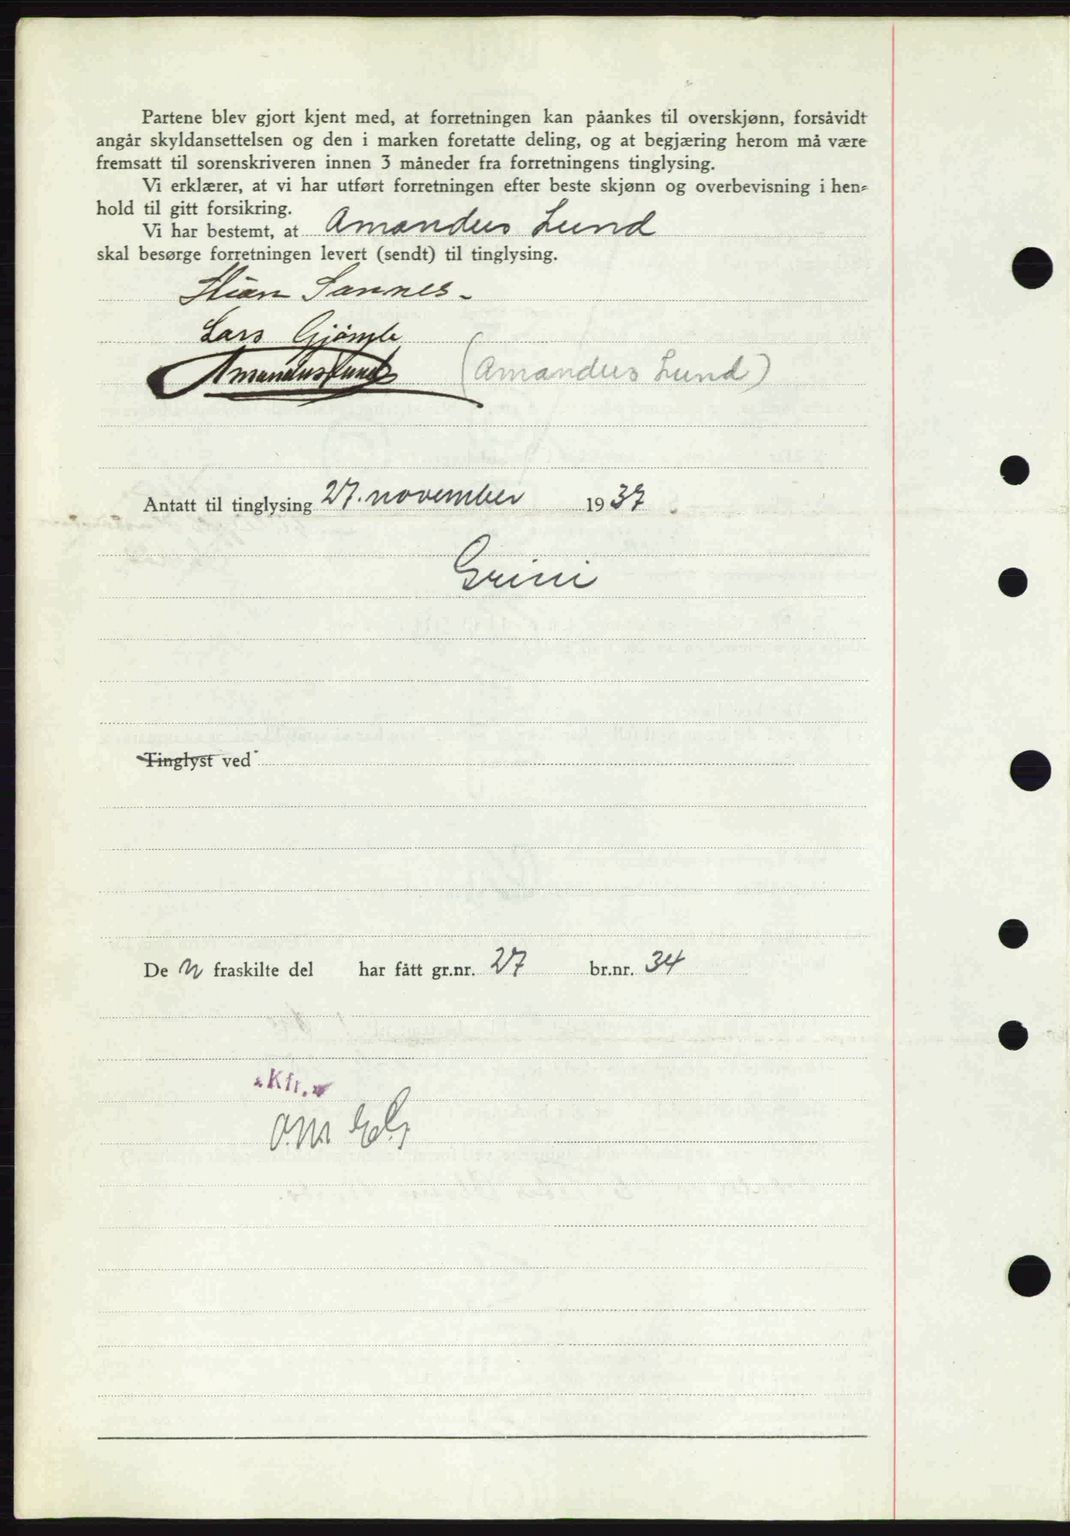 Partene blev gjort kjent med, at forretningen kan påankes til overskjønn, forsåvidt
angår skyldansettelsen og den i marken foretatte deling, og at begjæring herom må være
fremsatt til sorenskriveren innen 3 måneder fra forretningens tinglysing.
Vi erklærer, at vi har utført forretningen efter beste skjønn og overbevisning i hen-
hold til gitt forsikring.
Vi har bestemt, at Amandus Lund
skal besørge forretningen levert (sendt) til tinglysing.
Sannes.
Lars
Amandus Lund (Amandus Lund)
Antatt til tinglysing 27. november 1937
Grini
Tinglyst ved
De n fraskilte del har fått gr.nr. 27 br.nr. 34
Kfr.